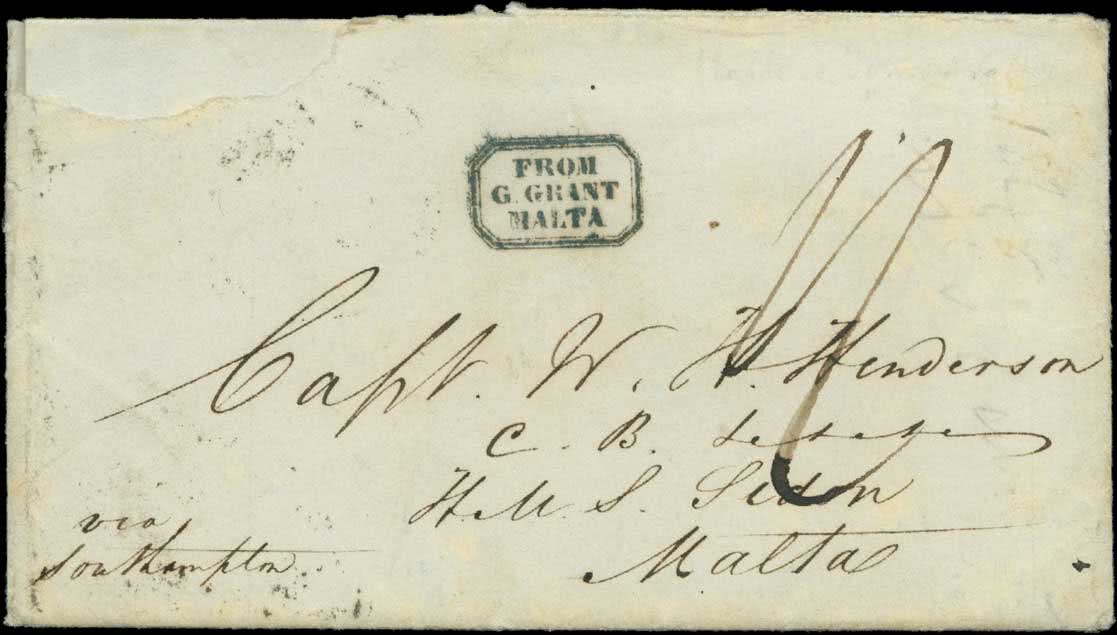 FROM
G. GRANT
MALTA
Capt. W. H. Henderson
C. B. &c &c &c
H. M. S. Sidon
Malta
via
Southampton